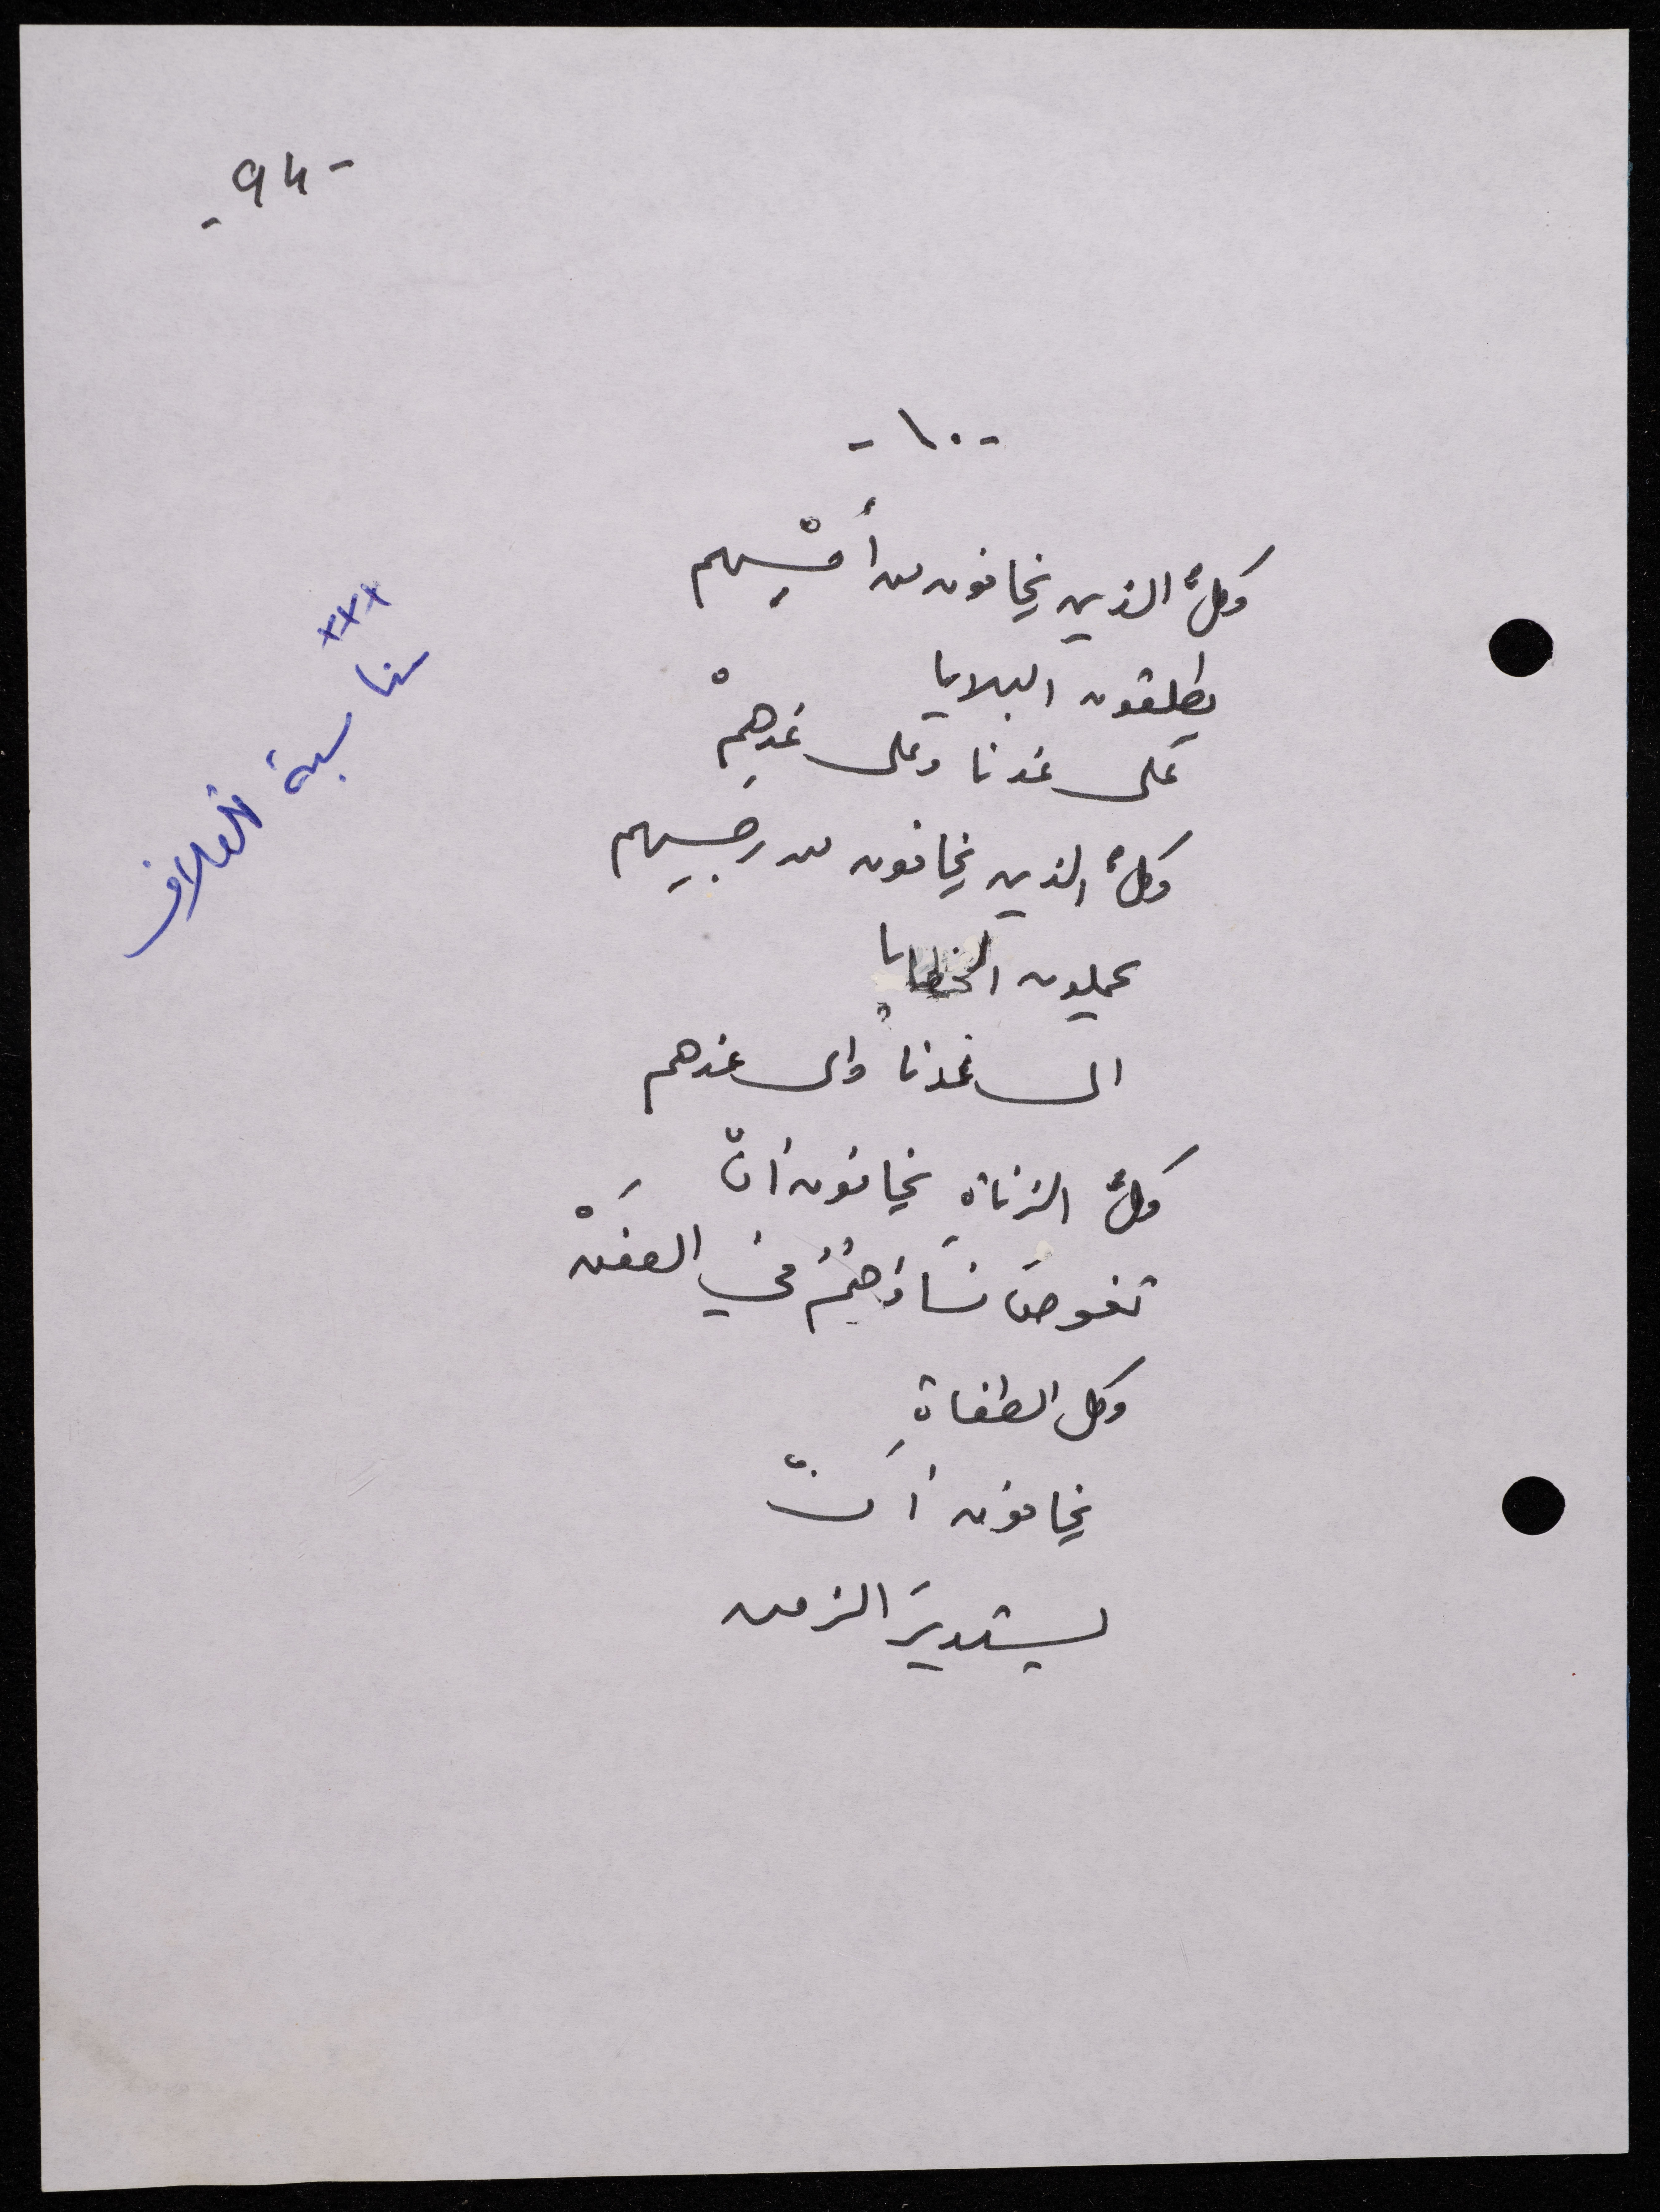 - 94 -
- ١٠ -
وكلُّ الذين يخافون من أمْسِهم
يطلقون البلايا
على غدنا وعلى غدِهِمْ
وكلُّ الذين يخافون من رجسِهم
يحملون الخطايا
إلى غدنا وإلى غدهم
وكلُّ الزناةِ يخافون أنْ
تغوصَ نساؤهُمُ في العفَنْ
وكل الطغاةِ
يخافون أنْ
يستديرَ الزمن
xxx
مناسبة الغلاف